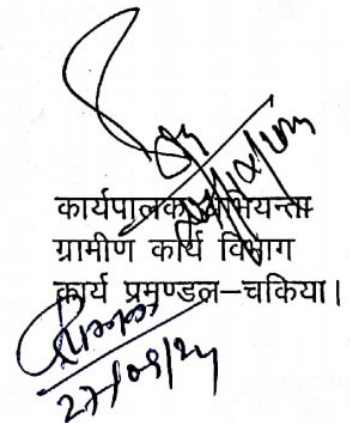 कार्यपालक अभियन्ता
ग्रामीण कार्य विभाग
कार्य प्रमण्डल–चकिया।
27/09/24